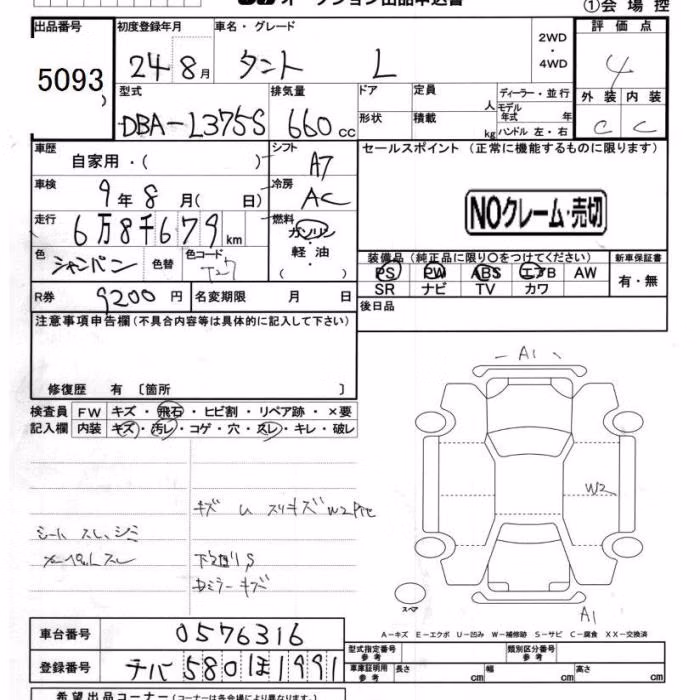 オークション出品申込書 ①会場控
出品番号 初度登録年月 車名・グレード 評価点
5093 24年8月 タント L 2WD・4WD 4
型式 排気量 ドア 定員 人 ディーラー・並行 外装 内装
DBA-L375S 660cc 形状 積載 kg モデル年式 年 ハンドル 左・右 C C
車歴 自家用・( ) シフト A7 セールスポイント (正常に機能するものに限ります)
車検 9年8月( 日) 冷房 AC NOクレーム・売切
走行 6万8千679km 燃料 ガソリン・軽油・( )
色 シャンパン 色替 色コード T27 装備品 (純正品に限り○をつけてください) 新車保証書
PS PW ABS エアB AW 有・無
SR ナビ TV カワ
R券 9200円 名変期限 月 日 後日品
注意事項申告欄 (不具合内容等は具体的に記入して下さい)
修復歴 有 〔箇所 〕
検査員 FW キズ・飛石・ヒビ割・リペア跡・×要
記入欄 内装 キズ・汚レ・コゲ・穴・スレ・キレ・破レ
A1
W2
キズ U スリキズ W2
シート スレ、シミ
スレ
S
ミラー キズ
スペア
A1
A-キズ E-エクボ U-凹み W-補修跡 S-サビ C-腐食 XX-交換済
車台番号 0576316
型式指定番号 参考 類別区分番号 参考
登録番号 チバ 580 ほ 1991
車庫証明用 参考 長さ cm 幅 cm 高さ cm
希望出品コーナー (コーナーは各会場により異なります)